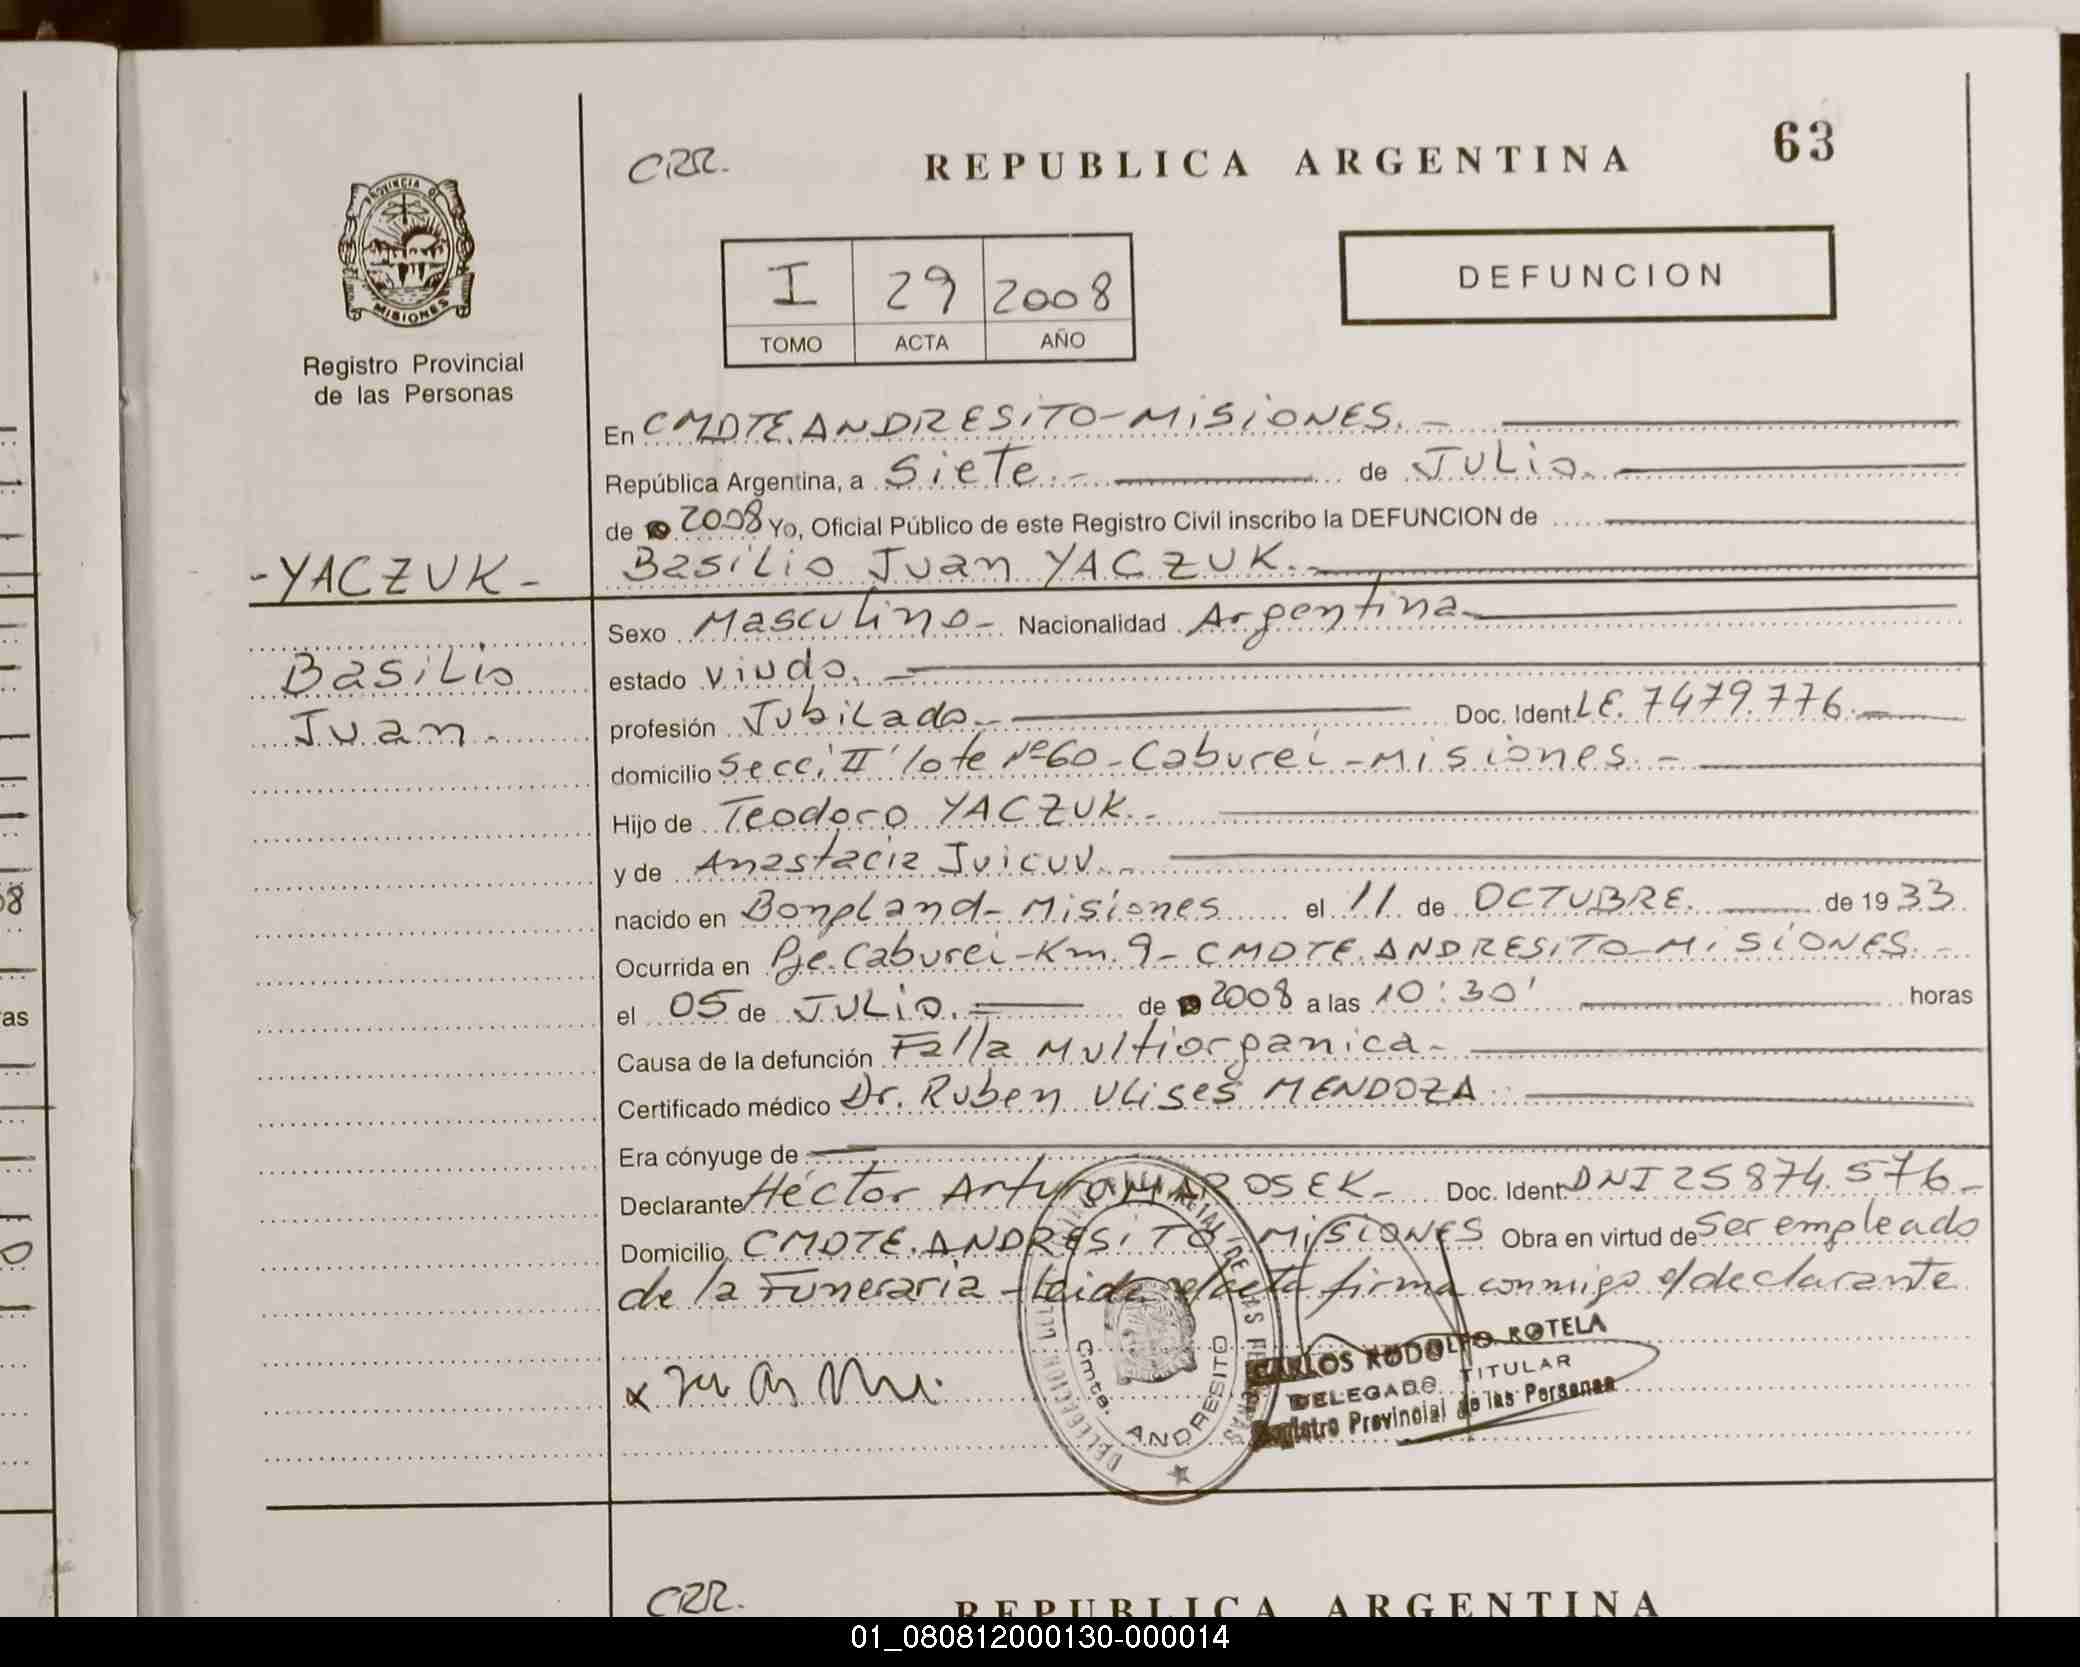 CRR.
REPUBLICA ARGENTINA
63
PROVINCIA DE
MISIONES
Registro Provincial
de las Personas
I 29 2008
TOMO ACTA AÑO
DEFUNCION
En CMDTE. ANDRESITO - MISIONES. -
República Argentina, a Siete. - de JULIO.
de 2008 Yo, Oficial Público de este Registro Civil inscribo la DEFUNCION de
- YACZUK -
Basilio Juan YACZUK. -
Sexo Masculino - Nacionalidad Argentina -
Basilio
Juan. -
estado viudo. -
profesión Jubilado. - Doc. Ident. L.E. 7479.776. -
domicilio Secc. II lote Nº 60 - Caburei - Misiones. -
Hijo de Teodoro YACZUK. -
y de Anastacia Juicuv. -
nacido en Bonpland - Misiones el 11 de OCTUBRE. de 1933.
Ocurrida en Pje. Caburei - Km. 9 - CMDTE. ANDRESITO - MISIONES. -
el 05 de JULIO. de 2008 a las 10:30' horas
Causa de la defunción Falla Multiorganica -
Certificado médico Dr. Ruben Ulises MENDOZA
Era cónyuge de
Declarante Héctor Arturo MAROSEK - Doc. Ident. DNI 25874.576 -
Domicilio CMDTE. ANDRESITO - MISIONES Obra en virtud de Ser empleado
de la Funeraria - Leida el acta firma conmigo el declarante
CARLOS RODOLFO ROTELA
DELEGADO TITULAR
Registro Provincial de las Personas
Cmte. ANDRESITO
CRR.
REPUBLICA ARGENTINA
01_080812000130-000014